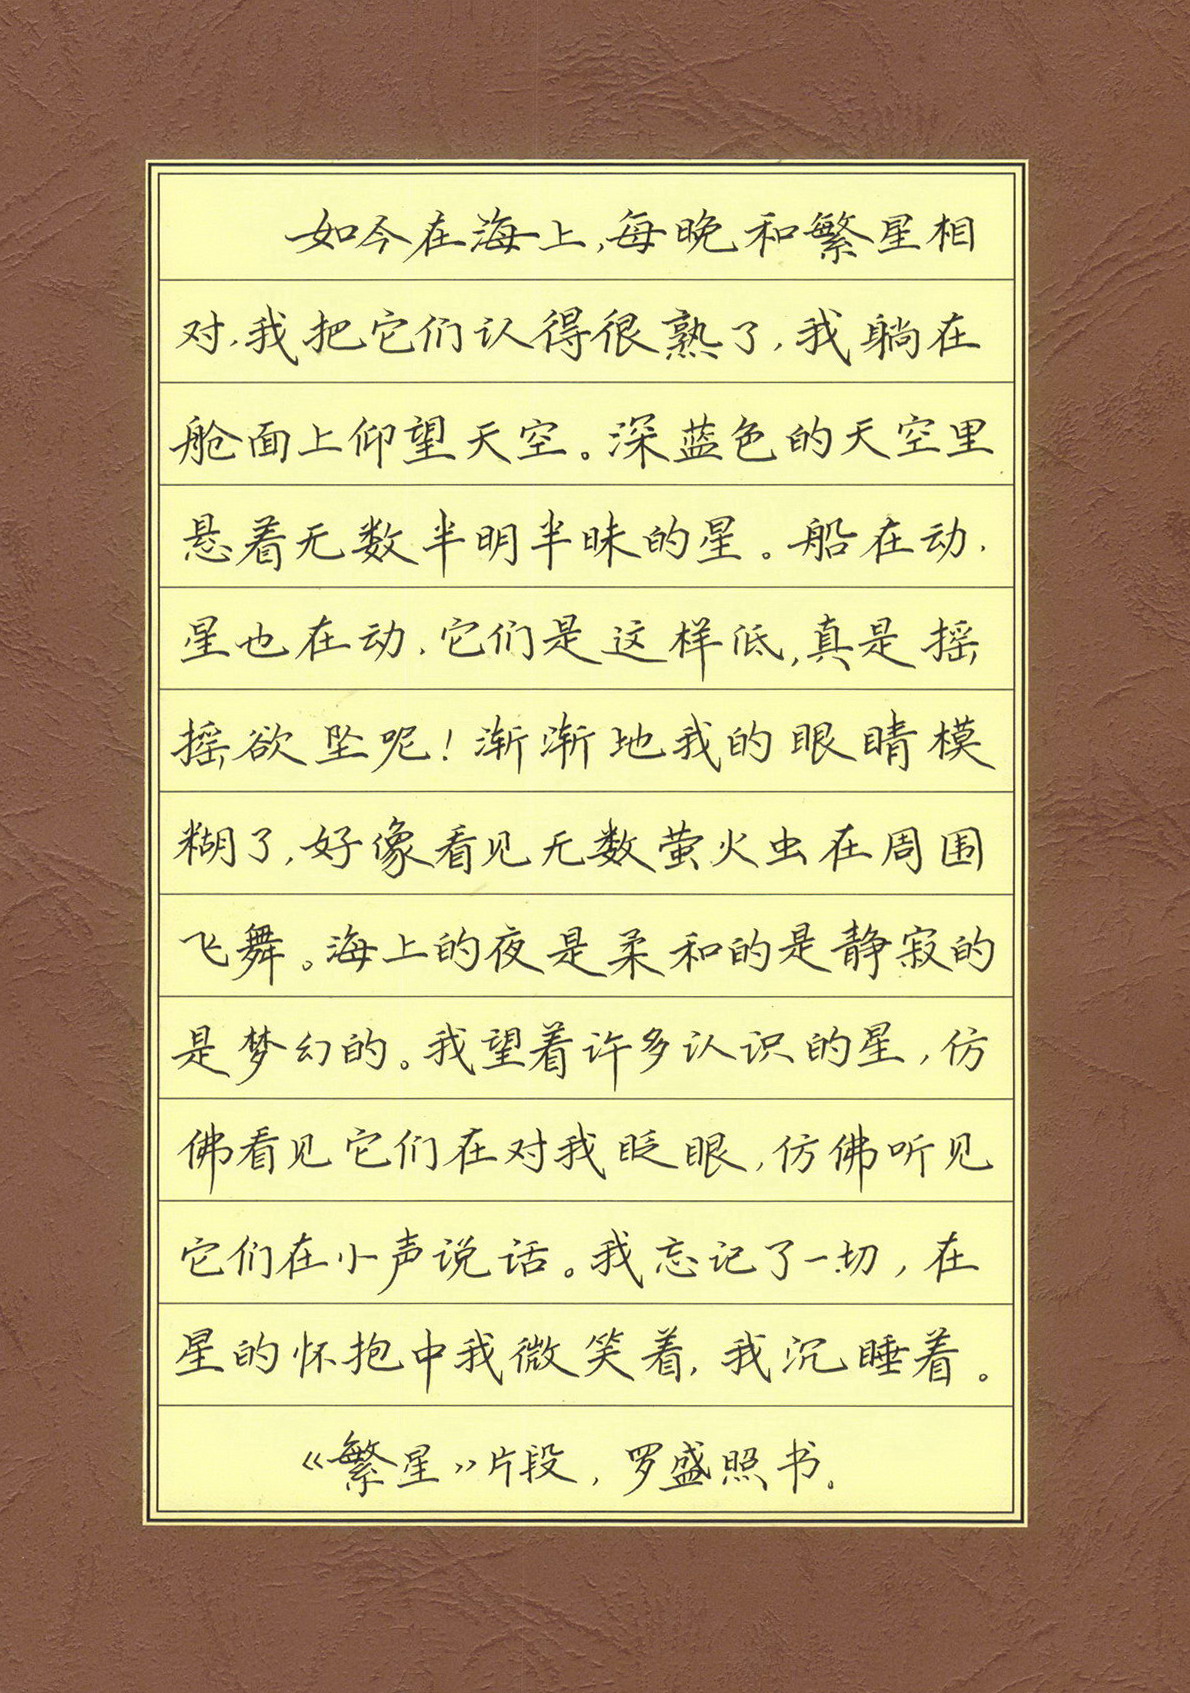 如今在海上,每晚和繁星相
对,我把它们认得很熟了,我躺在
舱面上仰望天空。深蓝色的天空里
悬着无数半明半昧的星。船在动,
星也在动,它们是这样低,真是摇
摇欲坠呢!渐渐地我的眼睛模
糊了,好像看见无数萤火虫在周围
飞舞。海上的夜是柔和的是静寂的
是梦幻的。我望着许多认识的星,仿
佛看见它们在对我眨眼,仿佛听见
它们在小声说话。我忘记了一切,在
星的怀抱中我微笑着,我沉睡着。
《繁星》片段,罗盛照书。